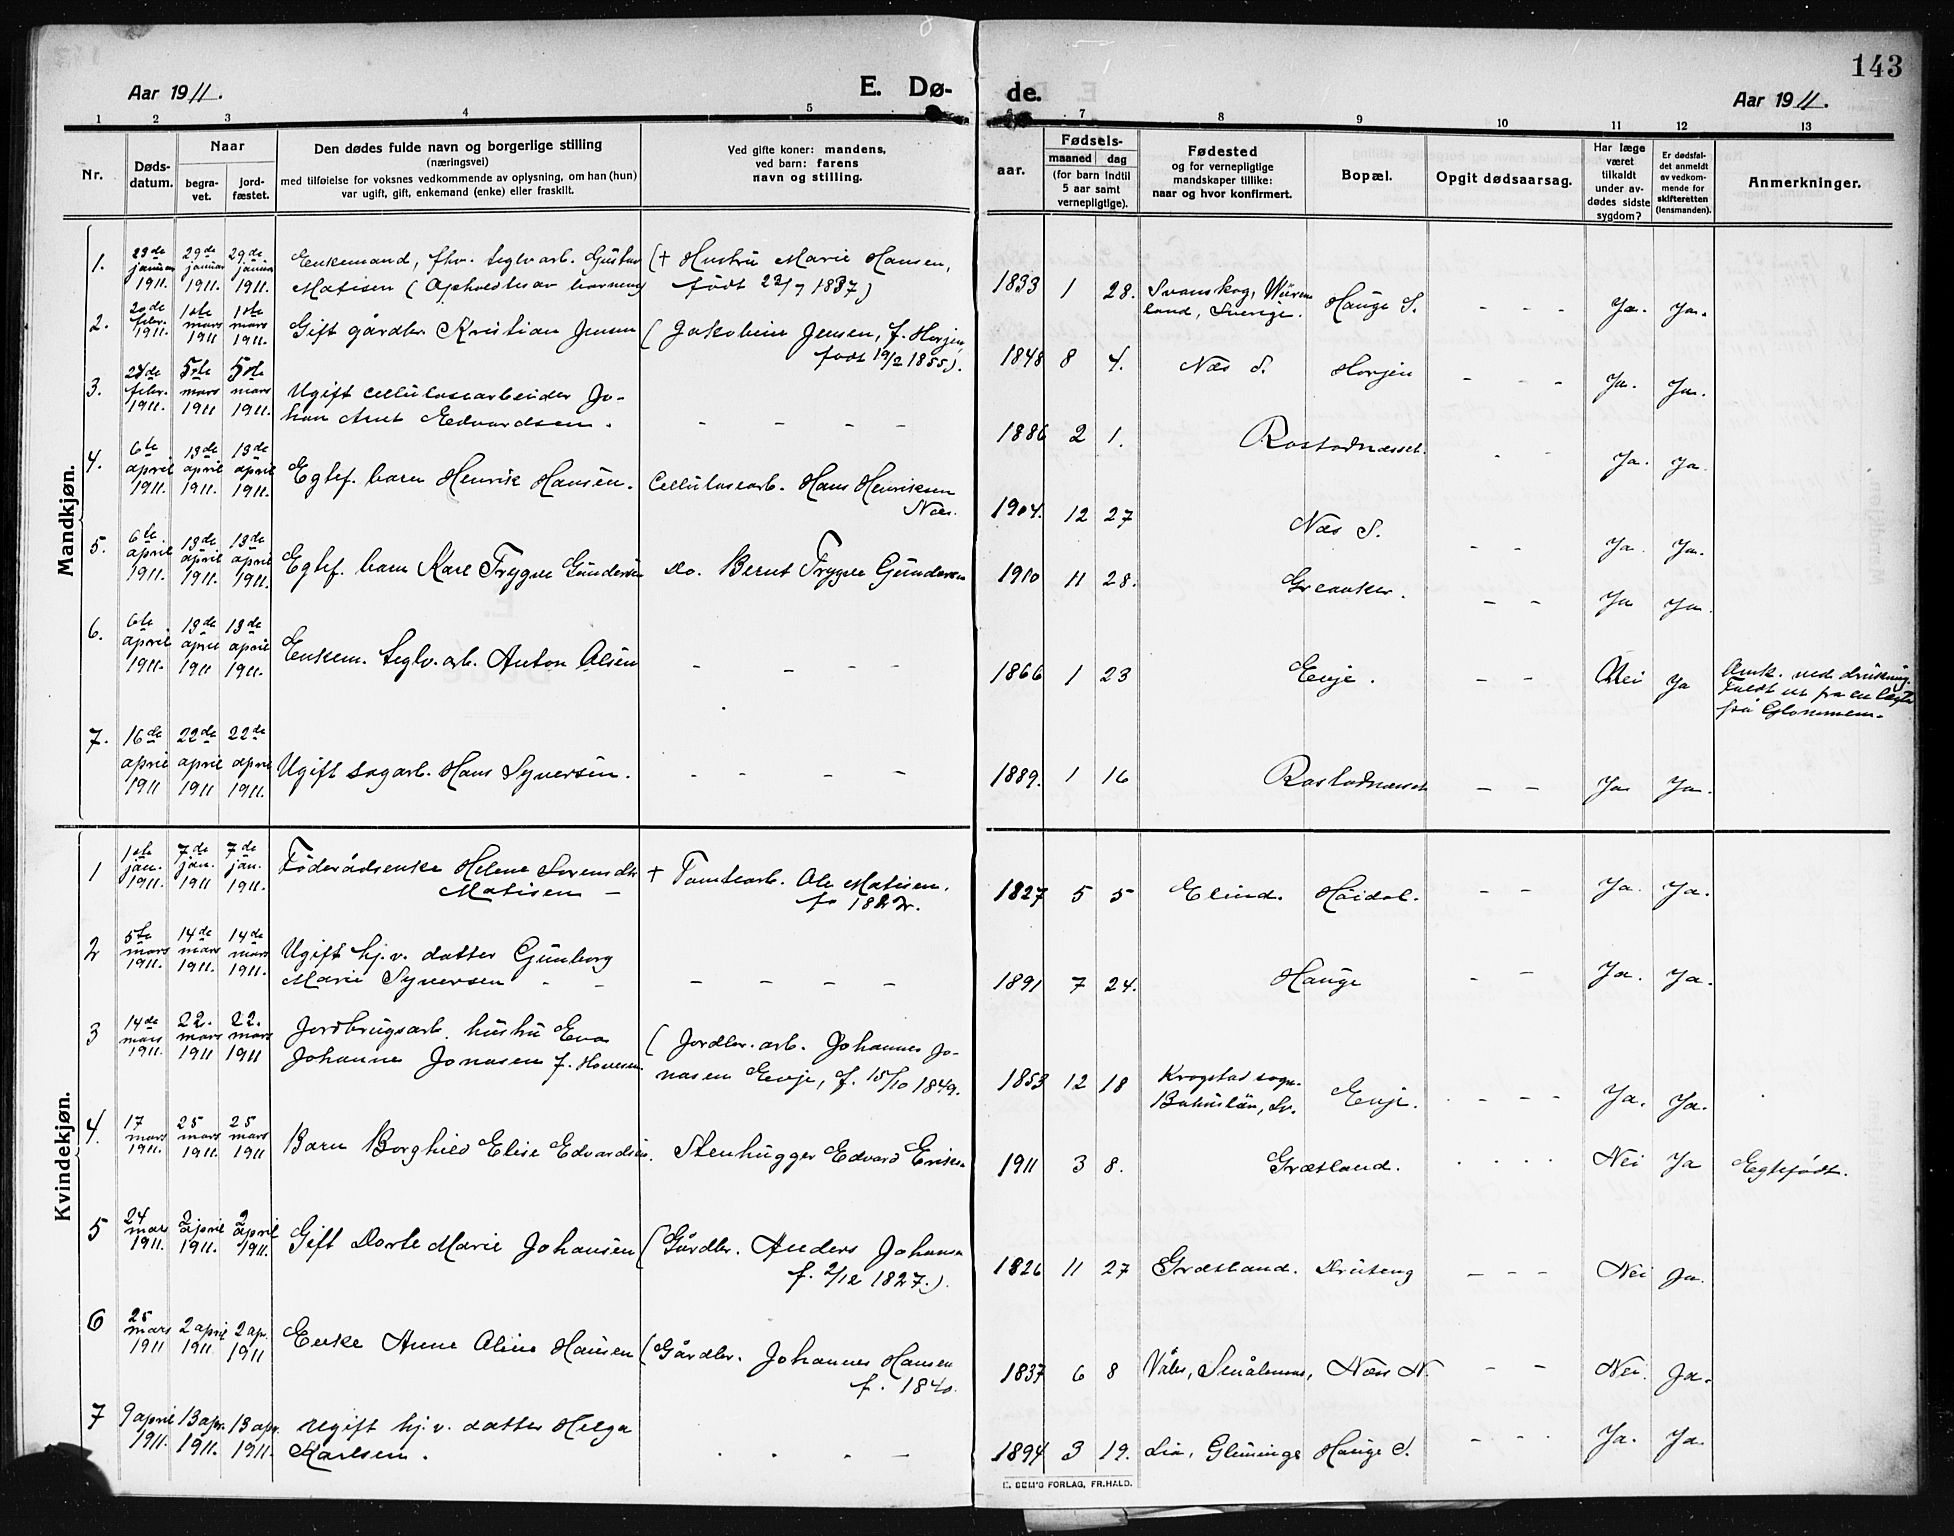 143
Aar 1911.
E. Dø-
de.
Aar 1911.
1 2 3 4 5 6 7 8 9 10 11 12 13
Nr.
Døds-
datum.
Naar
begra-
vet.
jord-
fæstet.
Den dødes fulde navn og borgerlige stilling
(næringsvei)
med tilføielse for voksnes vedkommende av oplysning, om han (hun)
var ugift, gift, enkemand (enke) eller fraskilt.
Ved gifte koner: mandens,
ved barn: farens
navn og stilling.
aar.
Fødsels-
maaned dag
(for barn indtil
5 aar samt
vernepligtige).
Fødested
og for vernepligtige
mandskaper tillike:
naar og hvor konfirmert.
Bopæl.
Opgit dødsaarsag.
Har læge
været
tilkaldt
under av-
dødes sidste
sygdom?
Er dødsfal-
det anmeldt
av vedkom-
mende for
skifteretten
(lensmanden).
Anmerkninger.
Mandkjøn.
1. 23de januar 1911. 29de januar 1911. 29de januar 1911.
Enkemand, fhv. teglv.arb. Gustav
Matisen
(+ Hustru Marie Hansen,
født 22/7 1837)
1833 1 28. Svanskog, Werm
land, Sverige. Hauge S. - - - Ja. Ja.
2. 20de febr. 1911. 1ste mars 1911 1ste mars 1911.
Gift gårdbr. Kristian Jensen
(Jakobine Jensen, f. Horjen
født 19/2 1855).
1848 8 4. Næs S. Horjen - - - Ja. Ja.
3. 24de febr. 1911. 5te mars 1911 5te mars 1911.
Ugift cellulosearbeider Jo-
han Arnt Edvardsen. - - - -
1886 2 1. Rostadnæsset. - - Ja. Ja.
4. 6te april 1911. 13de april 1911. 13de april 1911.
Egtef. barn Henrik Hansen. Cellulosearb. Hans Henriksen
Næs.
1904. 12 27 Næs S. - - Ja. Ja.
5. 6te april 1911. 13de april 1911. 13de april 1911.
Egtef. barn Kåre Trygve Gundersen do. Bernt Trygve Gundersen
1910 11 28. Greaaker. - - Ja Ja.
6. 6te april 1911. 13de april 1911 13de april 1911.
Enkem. teglv.arb. Anton Olsen - - - -
1866 1 23 Evje. Nei Ja Omk. ved drukning.
Faldt ut fra en lægte
på Glommen.
7. 16de april 1911 22de april 1911 22de april 1911.
Ugift sagarb. Hans Syversen. - - - -
1889. 1 16 Rostadnæsset - - Ja Ja.
Kvindekjøn.
1 1ste jan. 1911. 7de jan. 1911 7de jan. 1911.
Føderådsenke Helene Sørensdtr.
Matisen - + Tomtearb. Ole Matisen.
1827 5 5 Elind. Høidal. - - Ja. Ja.
2 5te mars 1911. 14de mars 1911. 14de mars 1911.
Ugift hj.v. datter Gunborg
Marie Syversen - - - - - -
1891 7 24. Hauge - - Ja. Ja.
3 14de mars 1911. 22. mars 1911 22. mars 1911
Jordbrugsarb. hustru Eva
Johanne Jonasen f.
(Jordbr. arb. Johannes Jo-
nasen Evje, f. 15/10 1849.
1853 12 18 Krogstad sogn.
Bahuslän, Sv. Evje. - - - - Ja. Ja.
4. 17 mars 1911. 25 mars 1911. 25 mars 1911
Barn Borghild Elise Edvardsen. Stenhugger Edvard Eriksen
1911 3 8. Græsland. - - - - Nei Ja Egtefødt.
5 24 mars 1911. 2 april 1911. 2 april 1911.
Gift Dorte Marie Johansen (Gårdbr. Anders Johansen
f. 2/12 1827.)
1826 11 27 Græsland. - - - Nei Ja.
6 25 mars 1911 2 april 1911 2 apr. 1911
Enke Anne Oline Hansen (Gårdbr. Johannes Hansen
f. 1840.
1837 6 8 Våler, Smålenene, Næs N. - - Nei. Ja.
7 9 april 1911. 13 apr. 1911. 13 apr. 1911.
Ugift hj.v. datter Helga
Karlsen. - - -
1894 3 19. Lia, Glemminge Hauge S. - - - Ja. Ja.
E. SEM'S FORLAG, FR.HALD.